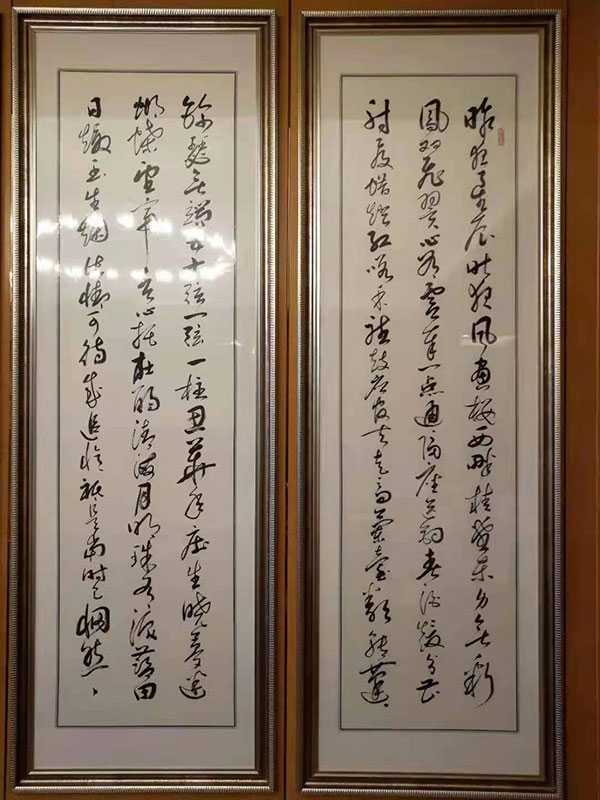 昨夜星辰昨夜風畫楼西畔桂堂東身無彩
鳳双飛翼心有靈犀一点通隔座送鉤春酒暖分曹
射覆蠟燈紅嗟余聽鼓應官去走馬蘭臺類轉蓬
錦瑟無端五十弦一弦一柱思華年莊生曉夢迷
蝴蝶望帝春心托杜鵑滄海月明珠有淚藍田
日暖玉生烟此情可待成追憶祇是當時已惘然